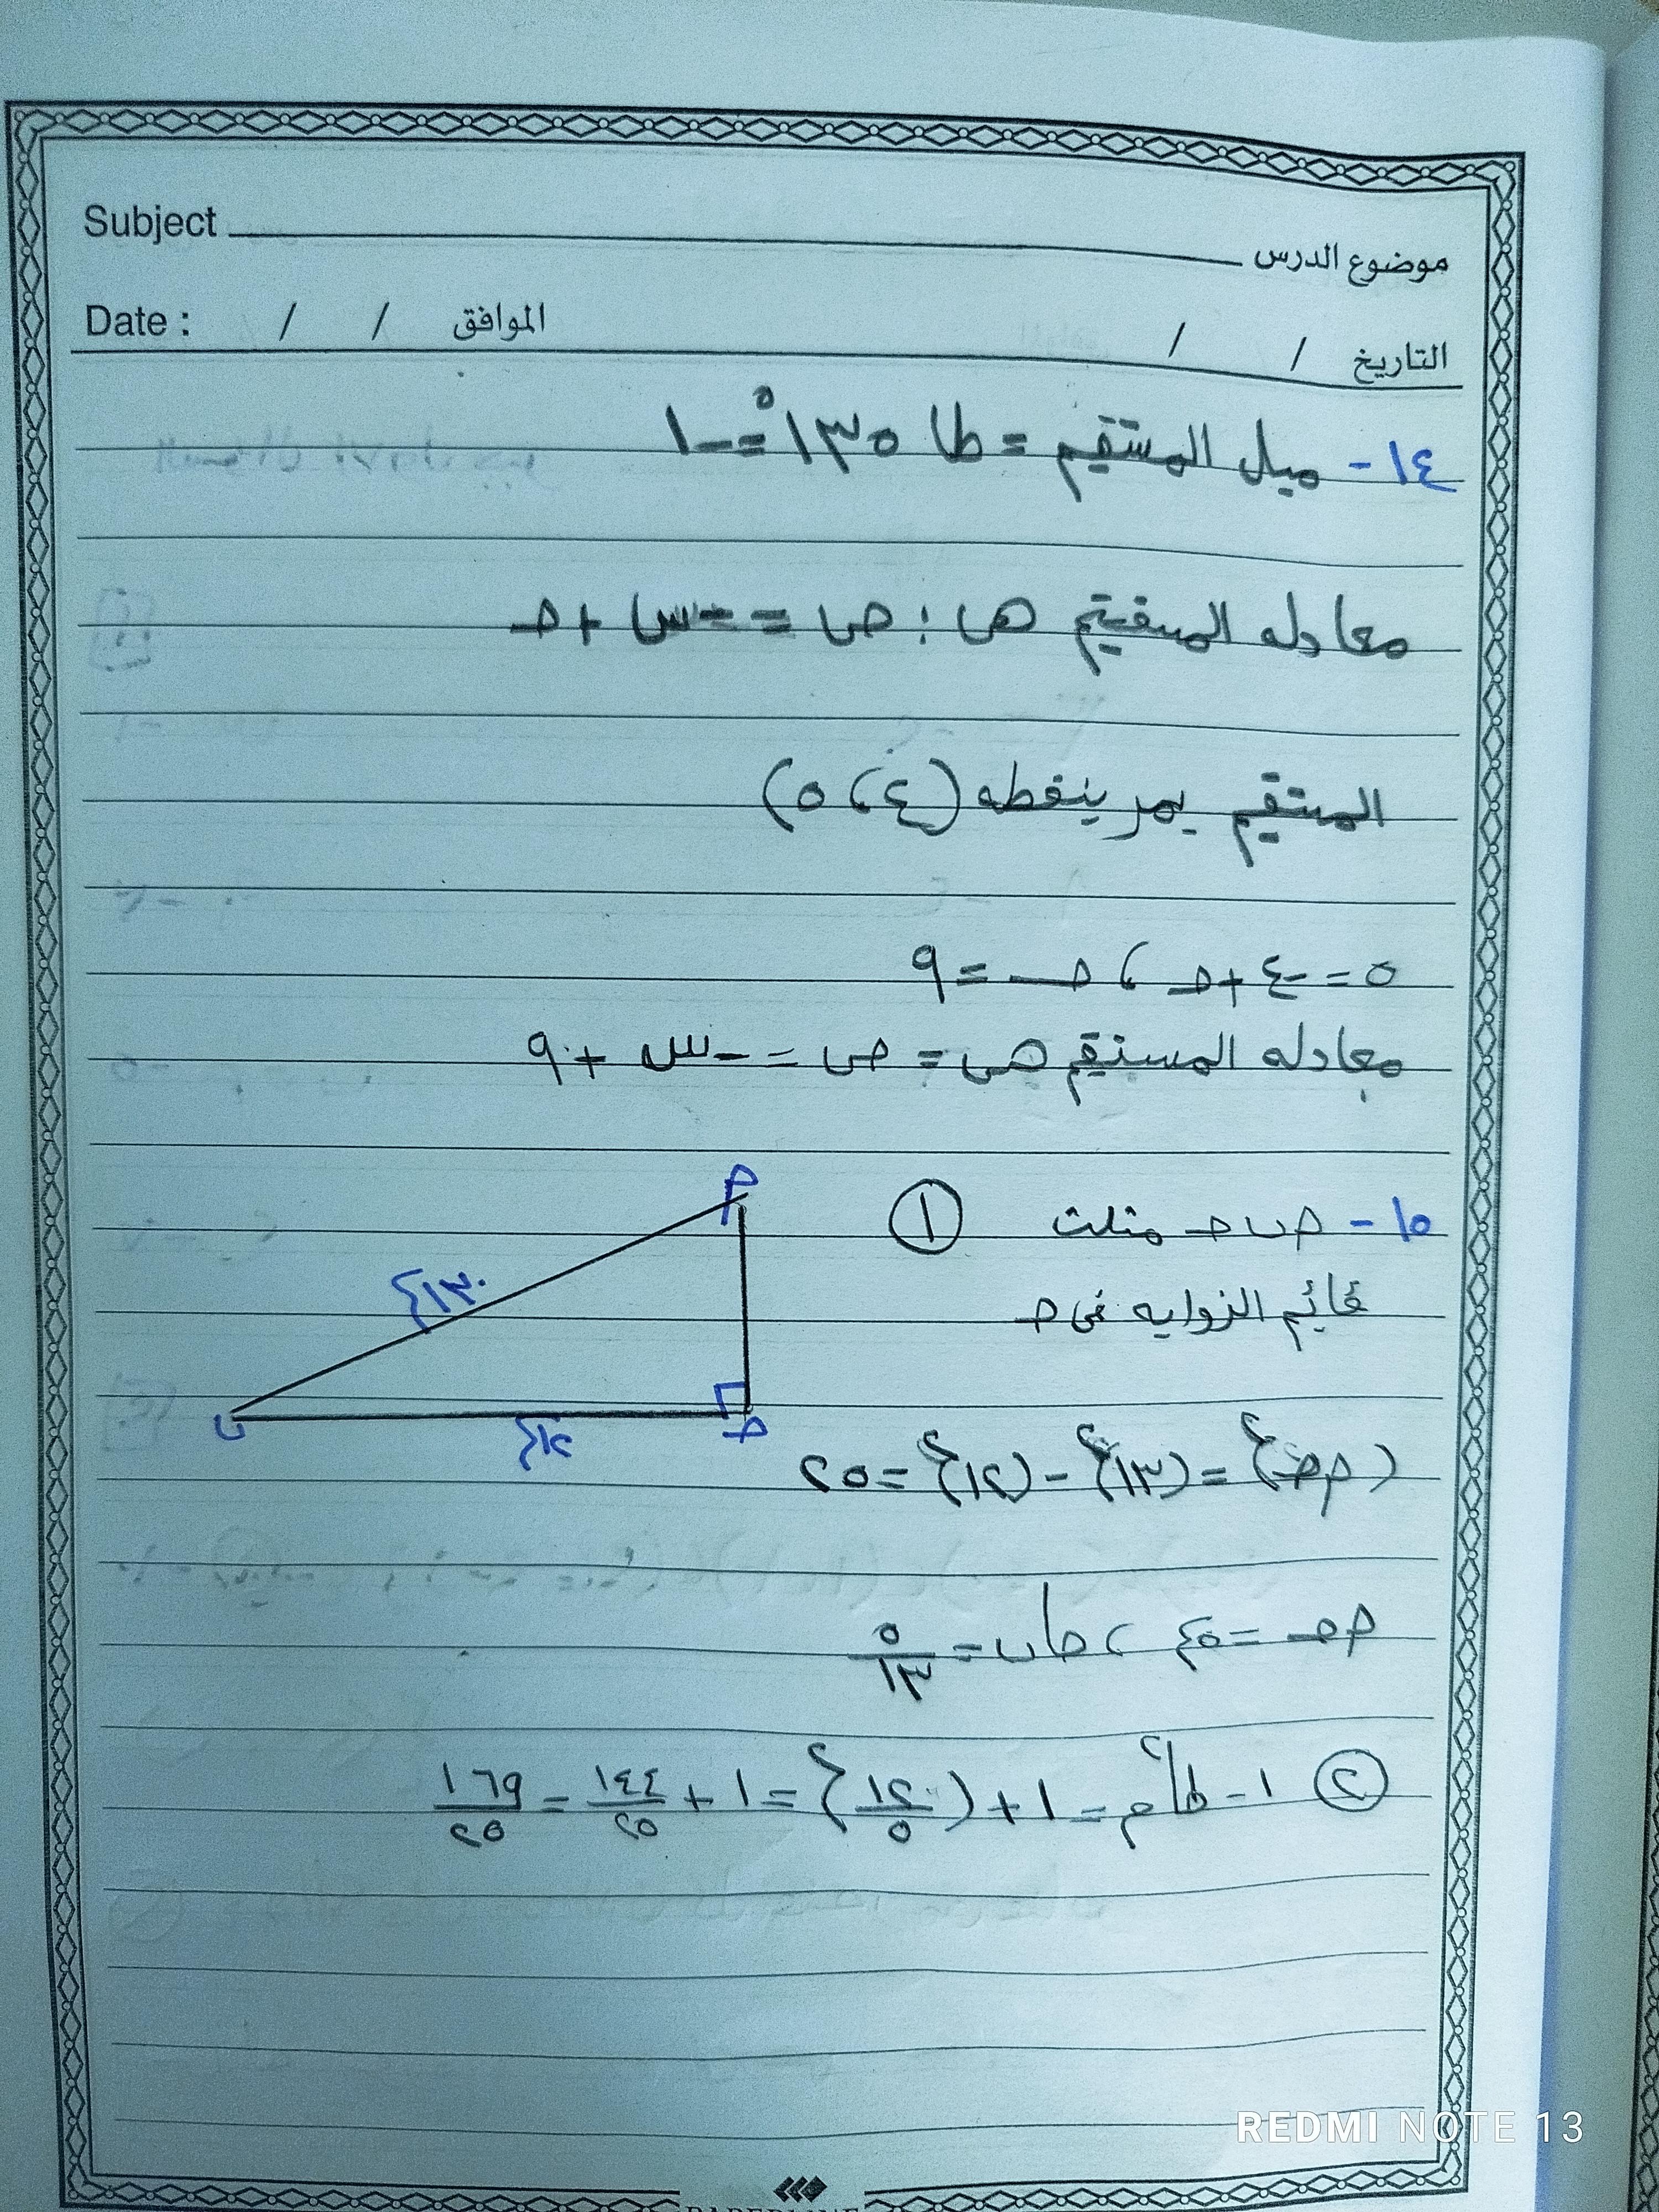 Subject موضوع الدرس
Date : / / الموافق / / التاريخ
١٤- ميل المستقيم = طا ١٣٥° = -١
معادله المستقيم هى : ص = -س + حـ
المستقيم يمر بنقطه (٤ ، ٥)
٥ = -٤ + حـ ، حـ = ٩
معادله المستقيم هى = ص = -س + ٩
١٥- م ب حـ مثلث ①
قائم الزوايه فى حـ
م
١٣
ب
١٢
حـ
(م حـ)² = (١٣)² - (١٢)² = ٢٥
م حـ = ٥ ، حا ب = ٥/١٣
② ١ - طا² م = ١ + (١٢/٥)² = ١ + ١٤٤/٢٥ = ١٦٩/٢٥
REDMI NOTE 13